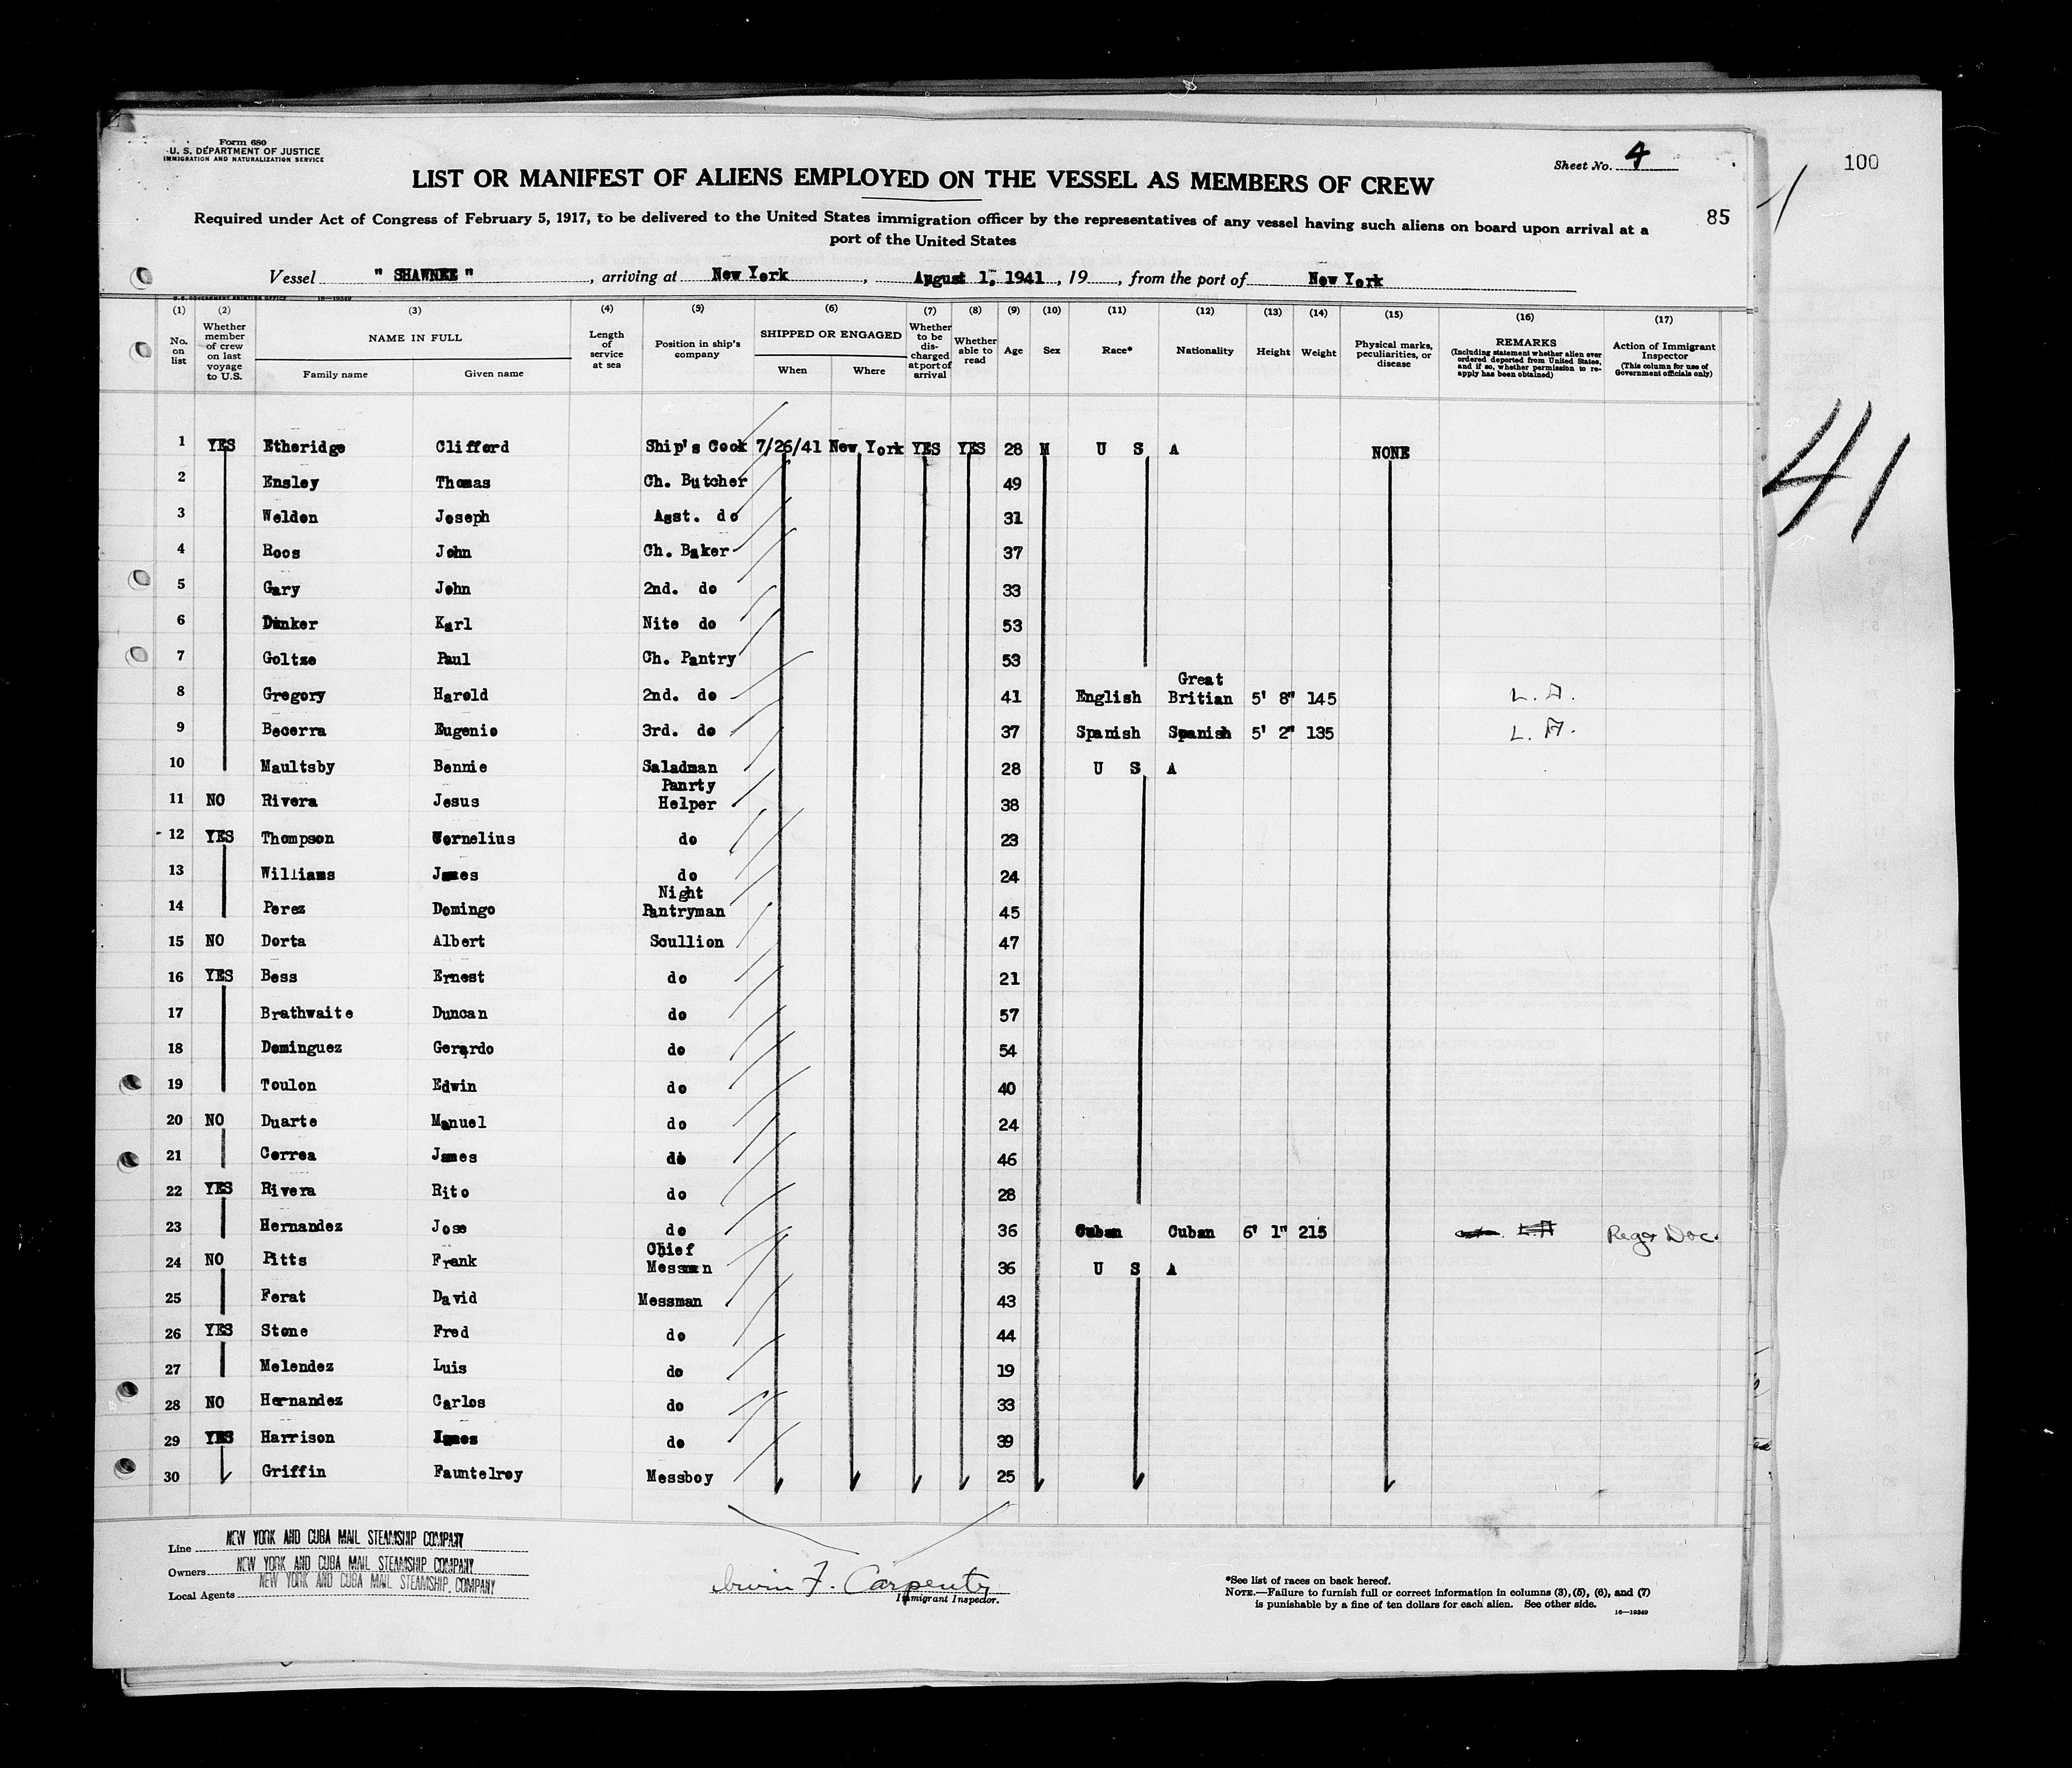 Form 680
U. S. DEPARTMENT OF JUSTICE
IMMIGRATION AND NATURALIZATION SERVICE
Sheet No. 4
100
LIST OR MANIFEST OF ALIENS EMPLOYED ON THE VESSEL AS MEMBERS OF CREW
85
Required under Act of Congress of February 5, 1917, to be delivered to the United States immigration officer by the representatives of any vessel having such aliens on board upon arrival at a
port of the United States
Vessel " SHAWNEE ", arriving at New York, August 1, 1941, 19, from the port of New York
U.S. GOVERNMENT PRINTING OFFICE 16—19349
(1) (2) (3) (4) (5) (6) (7) (8) (9) (10) (11) (12) (13) (14) (15) (16) (17)
No. on list
Whether member of crew on last voyage to U.S.
NAME IN FULL
Family name
Given name
Length of service at sea
Position in ship's company
SHIPPED OR ENGAGED
When
Where
Whether to be discharged at port of arrival
Whether able to read
Age
Sex
Race*
Nationality
Height
Weight
Physical marks, peculiarities, or disease
REMARKS
(Including statement whether alien ever ordered deported from United States, and if so, whether permission to reapply has been obtained)
Action of Immigrant Inspector
(This column for use of Government officials only)
41
1 YES Etheridge Clifford Ship's Cook 7/26/41 New York YES YES 28 M U S A NONE
2 Ensley Thomas Ch. Butcher 49
3 Weldon Joseph Asst. do 31
4 Roos John Ch. Baker 37
5 Gary John 2nd. do 33
6 Dunker Karl Nite do 53
7 Goltze Paul Ch. Pantry 53
8 Gregory Harold 2nd. do 41 English Great Britian 5' 8" 145 L. A.
9 Becerra Eugenio 3rd. do 37 Spanish Spanish 5' 2" 135 L. A.
10 Maultsby Bennie Saladman 28 U S A
11 NO Rivera Jesus Panrty Helper 38
12 YES Thompson Cornelius do 23
13 Williams James do 24
14 Perez Domingo Night Pantryman 45
15 NO Dorta Albert Scullion 47
16 YES Bess Ernest do 21
17 Brathwaite Duncan do 57
18 Dominguez Gerardo do 54
19 Toulon Edwin do 40
20 NO Duarte Manuel do 24
21 Correa James do 46
22 YES Rivera Rito do 28
23 Hernandez Jose do 36 Cuban Cuban 6' 1" 215 L.A Regr Doc.
24 NO Pitts Frank Chief Messman 36 U S A
25 Ferat David Messman 43
26 YES Stone Fred do 44
27 Melendez Luis do 19
28 NO Hernandez Carlos do 33
29 YES Harrison James do 39
30 Griffin Fauntelroy Messboy 25
Line NEW YORK AND CUBA MAIL STEAMSHIP COMPANY
Owners NEW YORK AND CUBA MAIL STEAMSHIP COMPANY
Local Agents NEW YORK AND CUBA MAIL STEAMSHIP COMPANY
Irwin F. Carpenter
Immigrant Inspector.
*See list of races on back hereof.
NOTE.—Failure to furnish full or correct information in columns (3), (5), (6), and (7)
is punishable by a fine of ten dollars for each alien. See other side.
16—19349